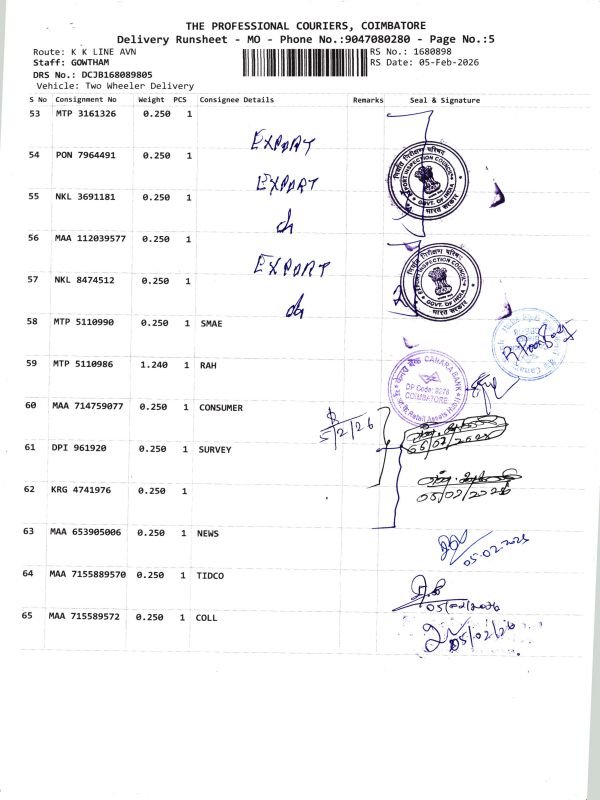 THE PROFESSIONAL COURIERS, COIMBATORE
Delivery Runsheet - MO - Phone No.:9047080280 - Page No.:5
Route: K K LINE AVN
RS No.: 1680898
Staff: GOWTHAM
RS Date: 05-Feb-2026
DRS No.: DCJB168089805
Vehicle: Two Wheeler Delivery
S No Consignment No Weight PCS Consignee Details Remarks Seal & Signature
53 MTP 3161326 0.250 1
EXPORT
54 PON 7964491 0.250 1
EXPORT
निर्यात निरीक्षण परिषद
EXPORT INSPECTION COUNCIL
GOVT. OF INDIA
भारत सरकार
55 NKL 3691181 0.250 1
56 MAA 112039577 0.250 1
EXPORT
निर्यात निरीक्षण परिषद
EXPORT INSPECTION COUNCIL
GOVT. OF INDIA
भारत सरकार
57 NKL 8474512 0.250 1
58 MTP 5110990 0.250 1 SMAE
59 MTP 5110986 1.240 1 RAH
केनरा बैंक CANARA BANK
DP Code:
COIMBATORE
Retail Assets Hub
60 MAA 714759077 0.250 1 CONSUMER
5/2/26
05/02/2026
61 DPI 961920 0.250 1 SURVEY
62 KRG 4741976 0.250 1
05/02/2026
63 MAA 653905006 0.250 1 NEWS
05.02.2026
64 MAA 7155889570 0.250 1 TIDCO
05/02/2026
65 MAA 715589572 0.250 1 COLL
05/02/26